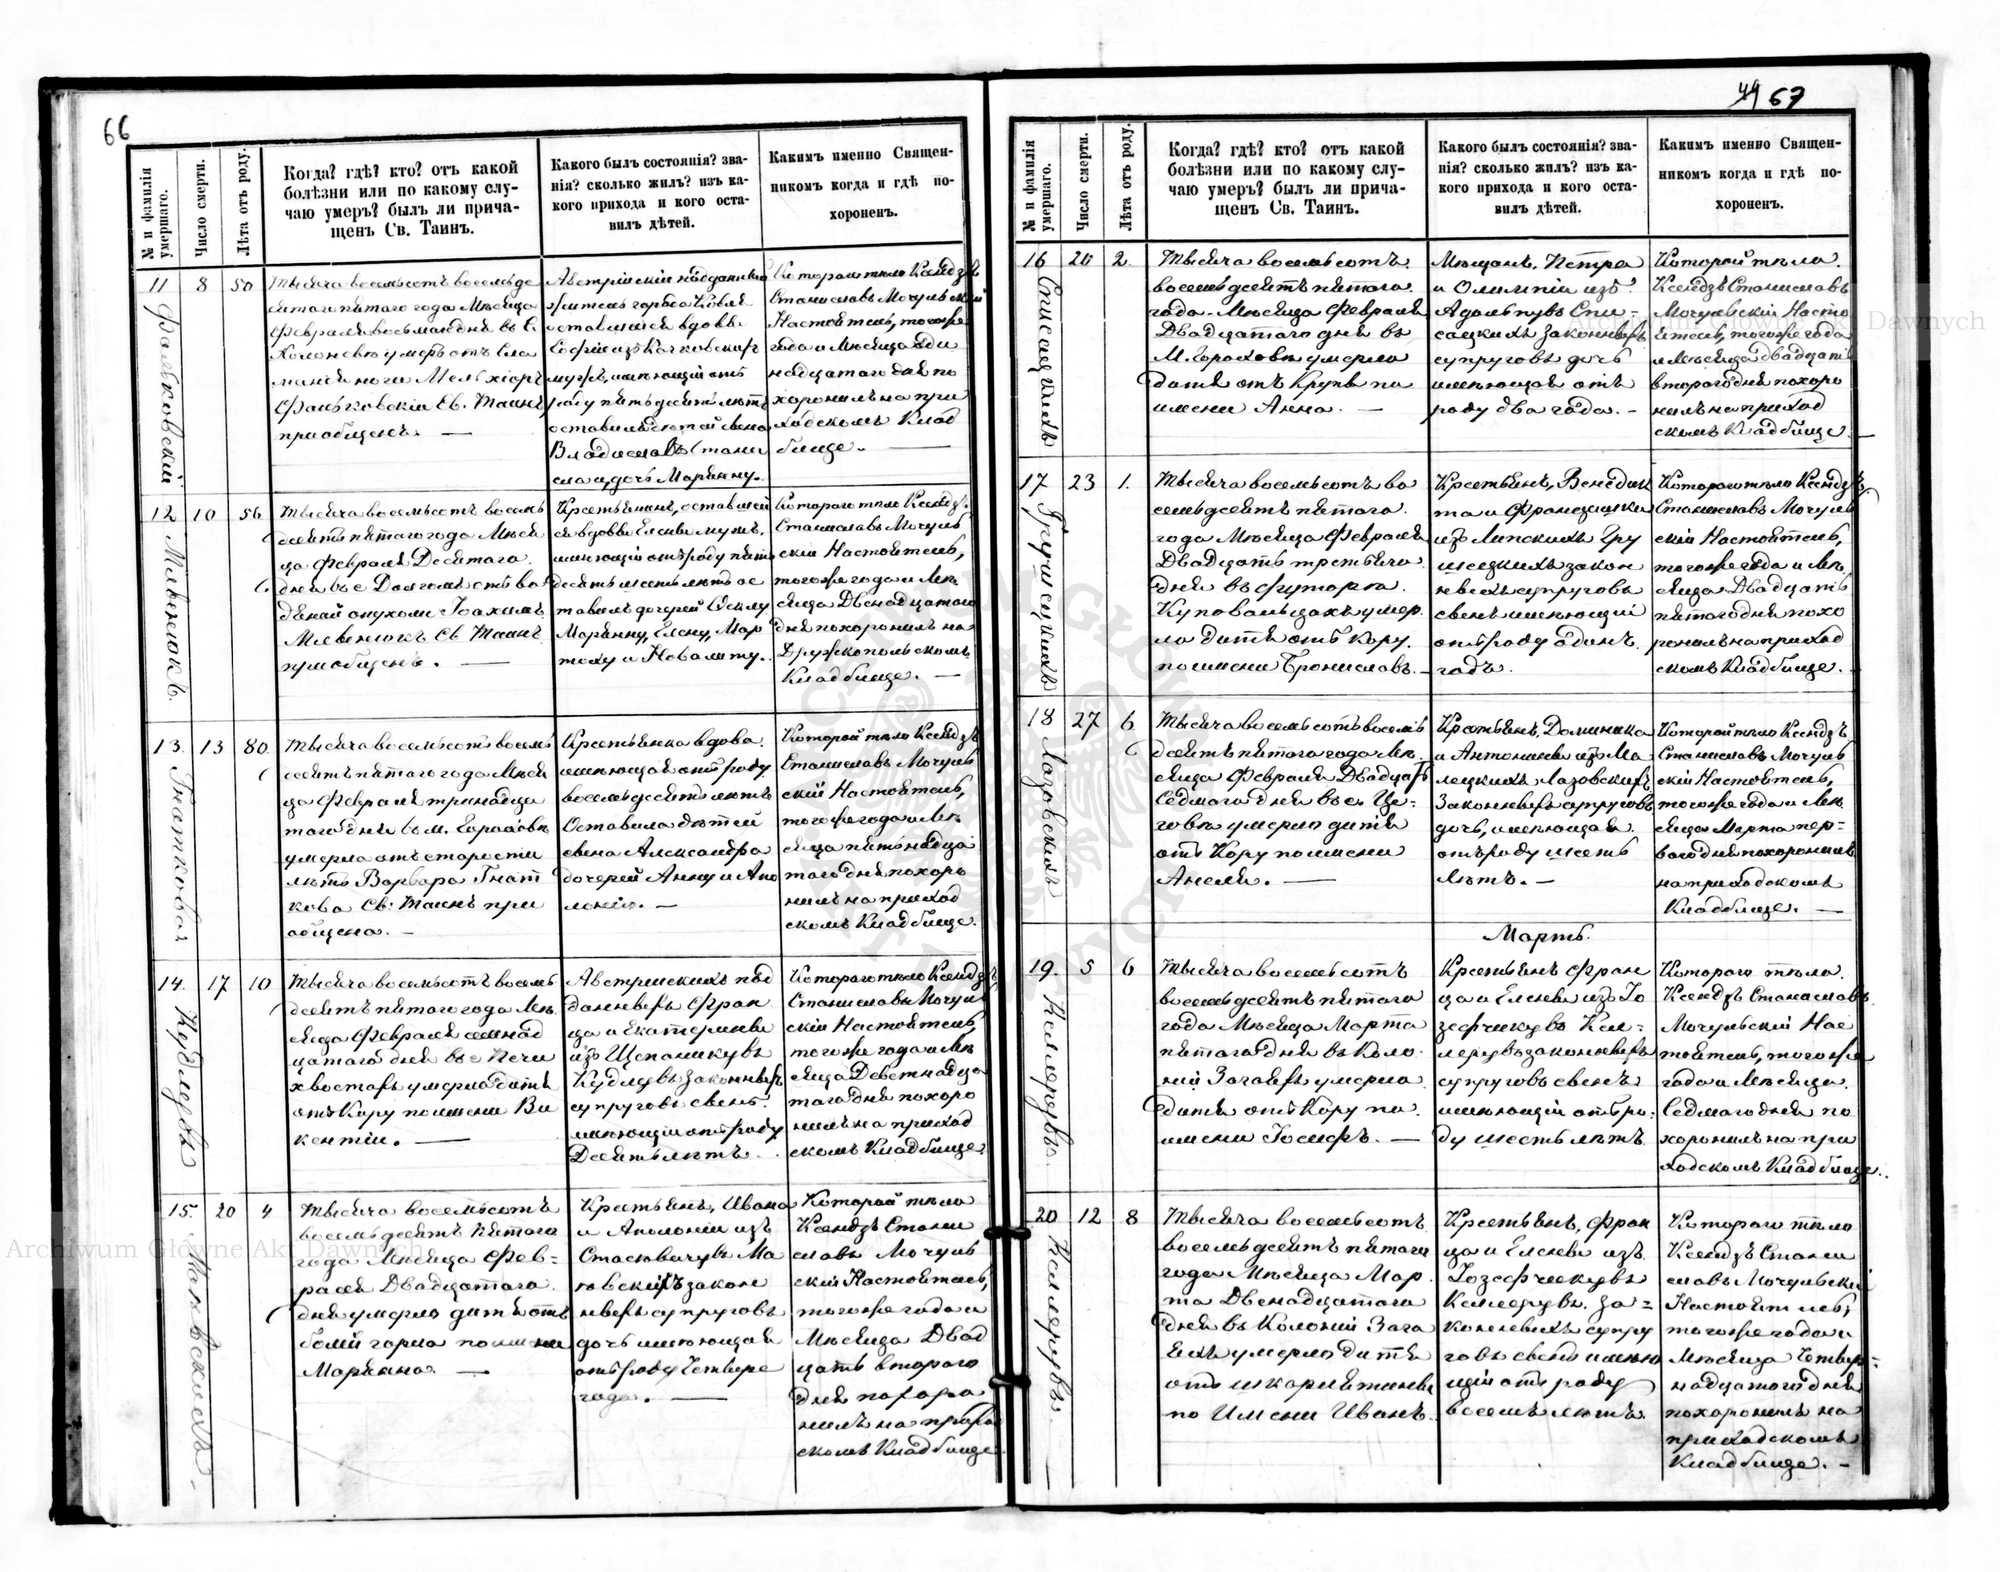 66
№ и фамилія умершаго.
Число смерти.
Лѣта отъ роду.
Когда? гдѣ? кто? отъ какой
болѣзни или по какому слу-
чаю умеръ? былъ ли прича-
щенъ Св. Таинъ.
Какого былъ состоянія? зва-
нія? сколько жилъ? изъ ка-
кого прихода и кого оста-
вилъ дѣтей.
Какимъ именно Священ-
никомъ когда и гдѣ по-
хороненъ.
11
8
50
Тысяча восемьсотъ восемьде
сятаго пятаго года Мѣсяца
Февраля восьмаго дня въ С.
умеръ отъ
ноги Мельхіоръ
Фальковскій Св. Таинъ
пріобщенъ. —
Австрійскій подданный
житель города
оставшійся вдовъ
Софіи изъ
мужъ, имѣющій отъ
роду пятьдесятъ лѣтъ
оставилъ дѣтей сына
Владислава, Стани
слава, дочь Марянну.
Котораго тѣло Ксендзъ
Станиславъ Мочульскій
Настоятель, тогоже
года и Мѣсяца оди
надцатого дня по
хоронилъ на при
ходскомъ Клад
бище. —
12
10
56
Тысяча восемьсотъ восемь
десятъ пятаго года Мѣся
ца Февраля Десятаго
дня въ с. отъ во
дяной опухоли Іоахимъ
Св. Таинъ
пріобщенъ. —
Крестьянинъ, оставшій
ся вдовы Елены мужъ,
имѣющій отъ роду пять
десятъ шесть лѣтъ ос
тавилъ дочерей Феклу
Марянну, Елену, Мар
Котораго тѣло Ксендзъ
Станиславъ Мочуль
скій Настоятель,
тогоже года и Мѣ
сяца Двенадцатаго
дня похоронилъ на
Дружкопольскомъ
Кладбище. —
13.
Гнаткова
13
80
Тысяча восемьсотъ восемь
десятъ пятаго года Мѣся
ца Февраля тринадца
таго дня въ м. Гороховѣ
умерла отъ старости
лѣтъ Варвара Гнат
кова Св. Таинъ прі
общена. —
Крестьянка вдова
имѣющая отъ роду
восемьдесятъ лѣтъ
Оставила дѣтей
сына Александра
дочерей Анну и Апо
лонію. —
Которой тѣло Ксендзъ
Станиславъ Мочуль
скій Настоятель,
тогоже года и Мѣ
сяца пятьнадца
таго дня похоро
нилъ на приход
скомъ Кладбище.
14.
17
10
Тысяча восемьсотъ восемь
десятъ пятаго года Мѣ
сяца Февраля семнад
цатаго дня въ с. Печи
хвостахъ умерло дитя
отъ Кору по имени Ви
кентій. —
Австрійскихъ под
данныхъ Фран
ца и Екатерины
изъ
законныхъ
супруговъ сынъ
имѣющій отъ роду
Десять лѣтъ.
Котораго тѣло Ксендзъ
Станиславъ Мочуль
скій Настоятель,
тогоже года и Мѣ
сяца Девятнадца
таго дня похоро
нилъ на приход
скомъ Кладбище.
15.
20
4
Тысяча восемьсотъ
восемьдесятъ пятаго
года Мѣсяца Фев-
раля Двадцатаго
дня умерло дитя отъ
боли горла по имени
Марянна. —
Крестьянъ, Ивана
и Аполоніи изъ
закон
ныхъ супруговъ
дочь имѣющая
отъ роду четыре
года. —
Которой тѣло
Ксендзъ Стани
славъ Мочуль
скій Настоятель,
тогоже года и
Мѣсяца Двад
цать втораго
дня похоро
нилъ на приход
скомъ Кладбище
67
№ и фамилія умершаго.
Число смерти.
Лѣта отъ роду.
Когда? гдѣ? кто? отъ какой
болѣзни или по какому слу-
чаю умеръ? былъ ли прича-
щенъ Св. Таинъ.
Какого былъ состоянія? зва-
нія? сколько жилъ? изъ ка-
кого прихода и кого оста-
вилъ дѣтей.
Какимъ именно Священ-
никомъ когда и гдѣ по-
хороненъ.
16
20
2
Тысяча восемьсотъ
восемьдесятъ пятаго
года Мѣсяца Февраля
Двадцатаго дня въ
М. Гороховѣ умерло
дитя отъ Крупа по
имени Анна. —
Мѣщанъ, Петра
и Олимпіи изъ
законныхъ
супруговъ дочь
имѣющая отъ
роду два года. -
Которой тѣло
Ксендзъ Станиславъ
Мочульскій Насто
ятель, тогоже года
и Мѣсяца двадцать
втораго дня похоро
нилъ на приход
скомъ Кладбище. —
17
23
1.
Тысяча восемьсотъ во
семьдесятъ пятаго
года Мѣсяца Февраля
Двадцать третьяго
дня въ футорѣ
умер
ло дитя отъ Кору
по имени Брониславъ. -
Крестьянъ, Бенедик
та и Францишки
изъ Липскихъ Гру
шецкихъ закон
ныхъ супруговъ
сынъ имѣющій
отъ роду одинъ
годъ.
Котораго тѣло Ксендзъ
Станиславъ Мочуль
скій Настоятель,
тогоже года и Мѣ
сяца Двадцать
пятаго дня похо
ронилъ на приход
скомъ Кладбище. -
18
Лазовскихъ
27
6
Тысяча восемьсотъ восемь
десятъ пятаго года Мѣ
сяца Февраля Двадцать
Седмаго дня въ с. Це-
говѣ умерло дитя
отъ Кору по имени
Анеля. —
Крестьянъ, Доминика
и Антонины изъ Ма
лецкихъ Лазовскихъ
Законныхъ супруговъ
дочь, имѣющая
отъ роду шесть
лѣтъ. —
Которой тѣло Ксендзъ
Станиславъ Мочуль
скій Настоятель,
тогоже года и Мѣ
сяца Марта пер-
ваго дня похоронилъ
на приходскомъ
Кладбище. —
Мартъ.
19.
5
6
Тысяча восемьсотъ
восемьдесятъ пятаго
года Мѣсяца Марта
пятаго дня въ Коло
ніи умерло
дитя отъ Кору по
имени Іосифъ. —
Крестьянъ Фран
ца и Елены изъ Іо
зефчикувъ Кел-
лерувъ законныхъ
супруговъ сынъ
имѣющій отъ ро-
ду шесть лѣтъ
Котораго тѣло
Ксендзъ Станиславъ
Мочульскій Нас
тоятель, тогоже
года и Мѣсяца
Седмаго дня по
хоронилъ на при
ходскомъ Кладбище.
20
Келлерувъ
12
8
Тысяча восемьсотъ
восемьдесятъ пятаго
года Мѣсяца Мар
та Двенадцатаго
дня въ Колоніи
умерло дитя
отъ шкарлятины
по Имени Иванъ.
Крестьянъ, Фран
ца и Елены изъ
Іозефчикувъ
Келлерувъ За-
конныхъ супру
говъ сынъ имѣю
щій отъ роду
восемь лѣтъ.
Котораго тѣло
Ксендзъ Стани
славъ Мочульскій
Настоятель,
тогоже года и
Мѣсяца Четыр-
надцатаго дня
похоронилъ на
приходскомъ
Кладбище. -
Archiwum Główne Akt Dawnych
Archiwum Główne Akt Dawnych